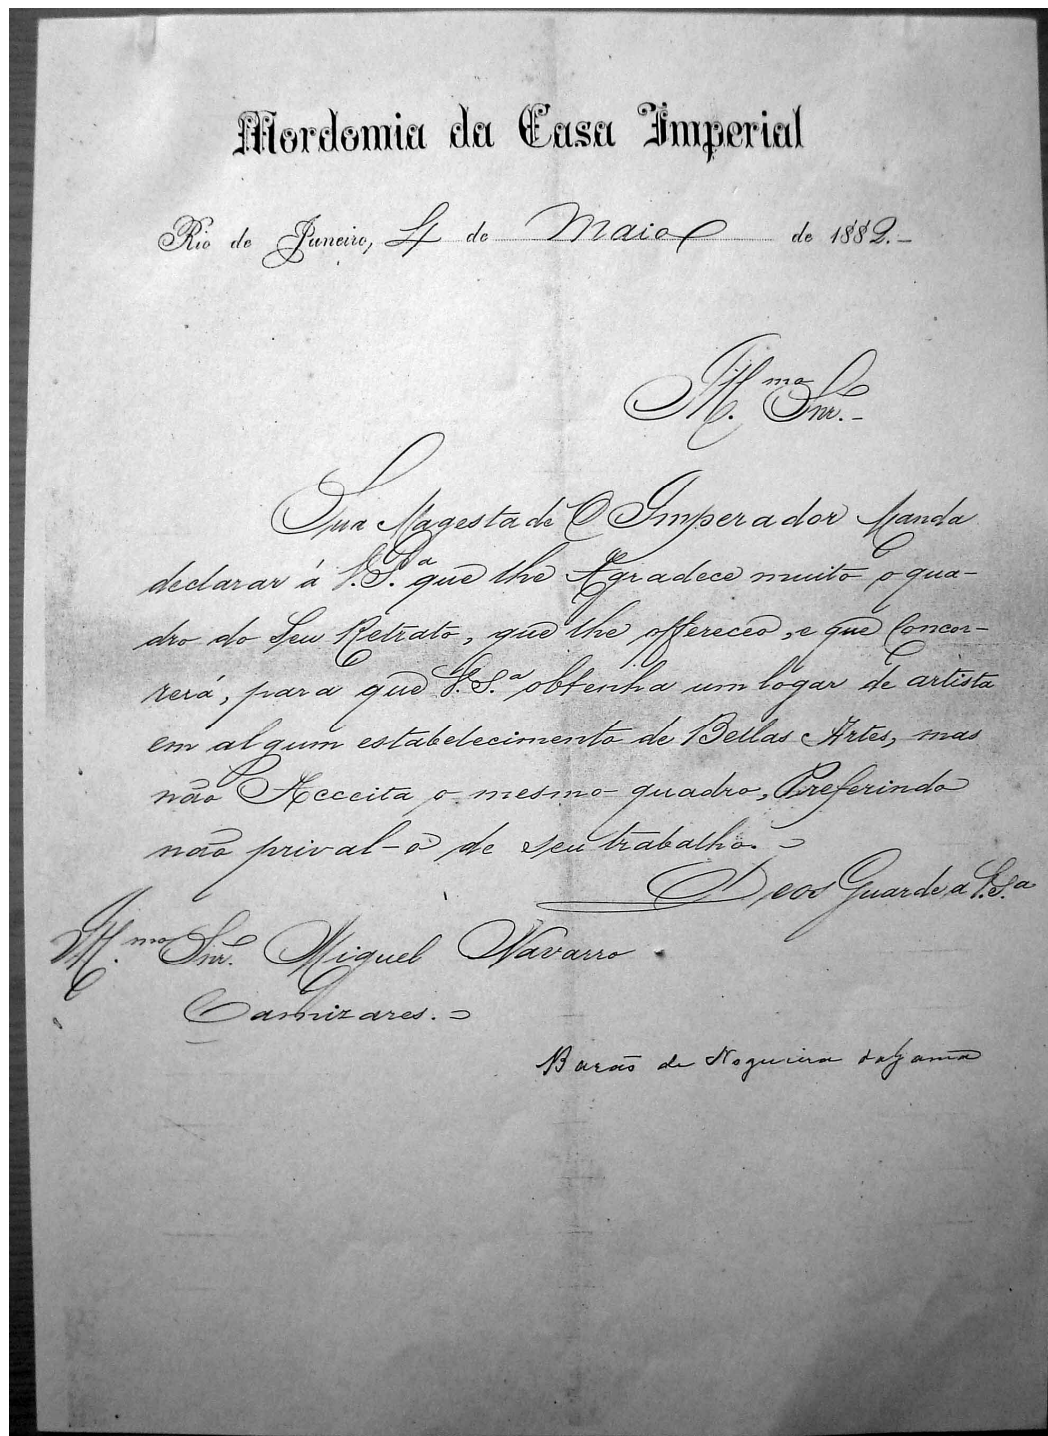 Mordomia da Casa Imperial
Rio de Janeiro, 4 de Maio de 1882.-
Ill.mo Snr.-
Sua Magestade O Imperador Manda
declarar á V.S.a que lhe Agradece muito o qua-
dro do Seu Retrato, que lhe offereceo, e que Concor-
rerá, para que V.S.a obtenha um logar de artista
em algum estabelecimento de Bellas Artes, mas
não Acceita o mesmo quadro, Preferindo
não prival-o de seu trabalho.=
Deos Guarde a V.S.a
Ill.mo Snr. Miguel Navarro
Camizares.=
Barão de Nogueira da Gama